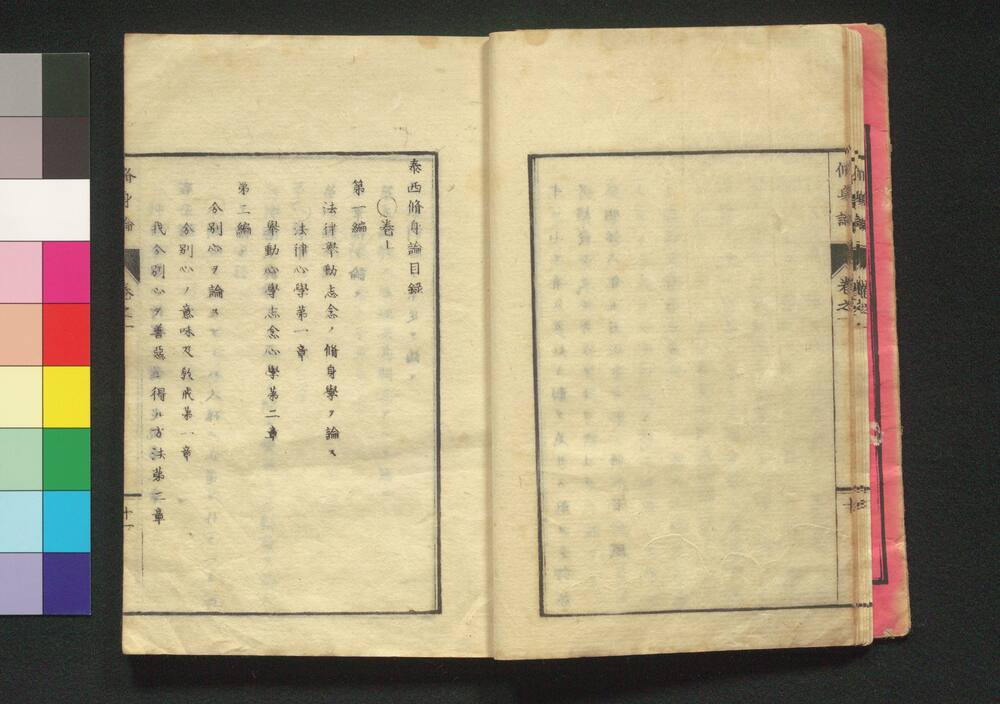 脩身論
卷之
十
泰西脩身論目録
○卷上
第一編
法律舉動志念ノ脩身學ヲ論ス
法律心學第一章
舉動心學志念心學第二章
第二編
分別心ヲ論ス
分別心ノ意味及敎戒第一章
我分別心ノ善惡ヲ得ル方法第二章
脩身論
卷之一
十一